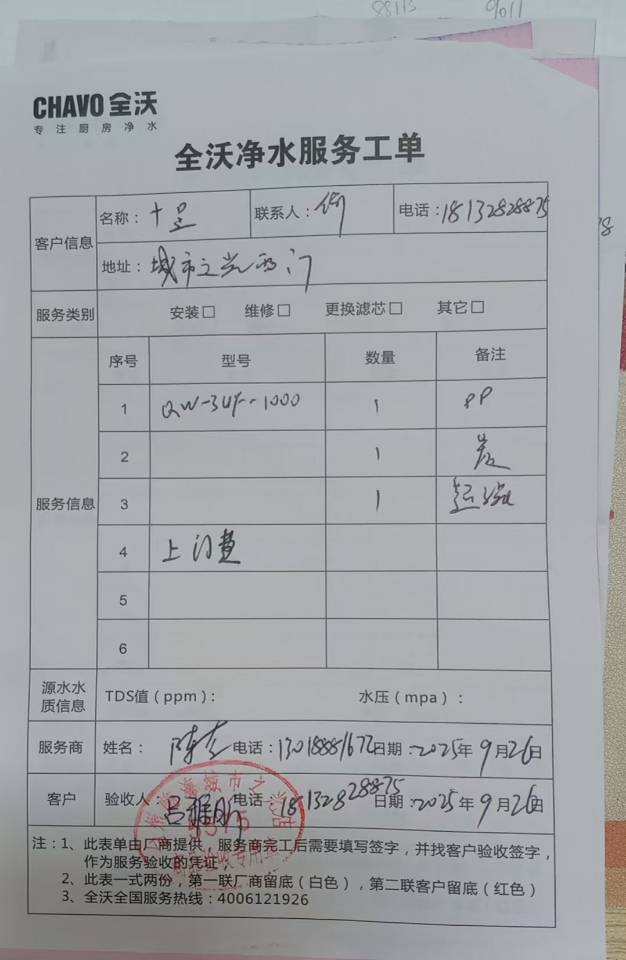 88113 9011
CHAVO 全沃
专注厨房净水
全沃净水服务工单
客户信息 名称：十足 联系人： 电话：18132828875
地址：城市之光西门
服务类别 安装□ 维修□ 更换滤芯□ 其它□
服务信息 序号 型号 数量 备注
1 QW-3UF-1000 1 PP
2 1 炭
3 1 超滤
4 上门费
5
6
源水水质信息 TDS值（ppm）： 水压（mpa）：
服务商 姓名： 电话：13018881672 日期：2025年9月26日
客户 验收人：吕雅 电话：18132828875 日期：2025年9月26日
注：1、此表单由厂商提供，服务商完工后需要填写签字，并找客户验收签字，
作为服务验收的凭证
2、此表一式两份，第一联厂商留底（白色），第二联客户留底（红色）
3、全沃全国服务热线：4006121926